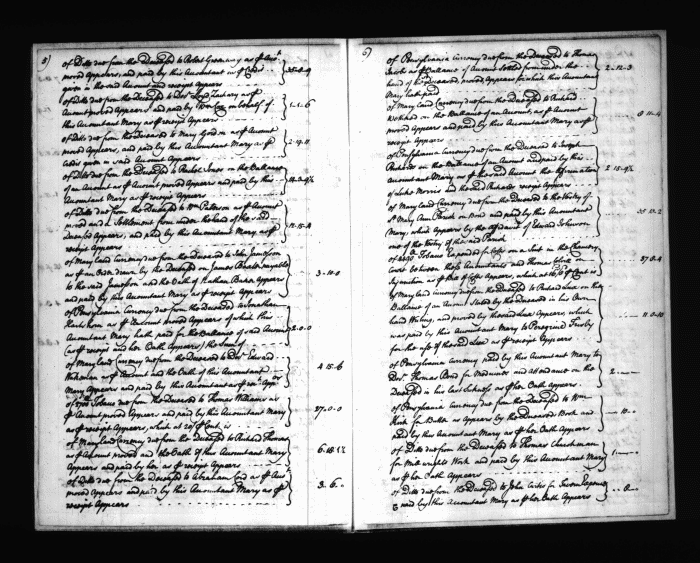 5)
of Ditto due from the Deceased to Robert Greenway as Acct
proved Appears, and paid by this Accountant as Credit
given in said Account and receipt Appears
35-8-9
of Ditto due from the Deceased to Doctr
Account proved Appears, and paid by
this Accountant Mary as receipt Appears
1-1-6
of Ditto due from the Deceased to Mary Gordon as Account
proved Appears, and paid by this Accountant Mary as
Credit given in said Account Appears
2-19-11
of Ditto due from the Deceased to Jones on the Ballance
of an Account as Account proved Appears and paid by this
Accountant Mary as receipt Appears
of Ditto due from the Deceased to Wm Patterson as Account
proved and a Settlement from under the hand of the said
deceased Appears, and paid by this Accountant Mary as
receipt Appears
12-15-4
of Maryland Currency due from the Deceased to John Jameson
as an Order drawn by the Deceased on James Baxter payable
to the said Jameson and the Oath of Nathan Baker Appears
and paid by this Accountant Mary as receipt Appears
3-10-0
of Pensylvania Currency due from the Deceased to Jonathan
as Account proved Appears of which this
Accountant Mary hath paid for the Ballance of said Account
(as receipt and her Oath Appears) the Sum of
2-0-0
of Maryland Currency due from the Deceased to Doctr Edward
as Account and the Oath of this Accountant
Mary Appears and paid by this Accountant as receipt Appears
4 15-6
of Tobacco due from the Deceased to Thomas Williams as
Account proved Appears and paid by this Accountant Mary
as receipt Appears, which at 20/ Ct is
37-0-0
of Maryland Currency due from the Deceased to Richard Thomas
as Account proved and the Oath of this Accountant Mary
Appears and paid by her as receipt Appears
of Ditto due from the Deceased to Abraham as Acct
proved Appears and paid by this Accountant Mary as
receipt Appears
3-6-
6)
of Pensylvania Currency due from the Deceased to Thomas
Jacobs as Ballance of Account Settled from under the
hand of the deceased, proved Appears for which this Accountant
Mary hath paid
2-12-3
of Maryland Currency due from the Deceased to Richard
on the Ballance of an Account, as Account
proved Appears and paid by this Accountant Mary as
receipt Appears
8 11-4
of Pensylvania Currency due from the Deceased to Joseph
Richards on the Ballance of an Account and paid by this
Accountant Mary as the said Account the Affirmation
of Luke Morris and the said Richards receipt Appears
of Maryland Currency due from the Deceased to the Vestry of
St Mary Ann Parish on Bond and paid by this Accountant
Mary, which Appears by the Affidavit of Edward Johnson
one of the Vestry of the said Parish
35 13-2
of Tobacco Expended in Costs on a Suit in the Chancery
Court between these Accountants and Thomas
Injunction as the Bill of Costs Appears, which at Ct is
37 8-4
of Maryland Currency due from the Deceased to Richard Lux on the
Ballance of an Account Stated by the Deceased in his Own
hand Writing, and proved by the said Lux Appears, which
was paid by this Accountant Mary to Peregrine Frisby
for the use of the said Lux as receipt Appears
11 0-10
of Pensylvania Currency paid by this Accountant Mary to
Doctr Thomas Bond for Medicines and attendance on the
Deceased in his last Sickness as her Oath Appears
2
of Pensylvania Currency due from the Deceased to Wm
for Butter as Appears by the Deceased Book and
paid by this Accountant Mary as her Oath Appears
of Ditto due from the Deceased to Thomas Cruchman
for Mill wrights Work and paid by this Accountant Mary
as her Oath Appears
1
of Ditto due from the Deceased to John for Tavern Expences
paid by this Accountant Mary as her Oath Appears